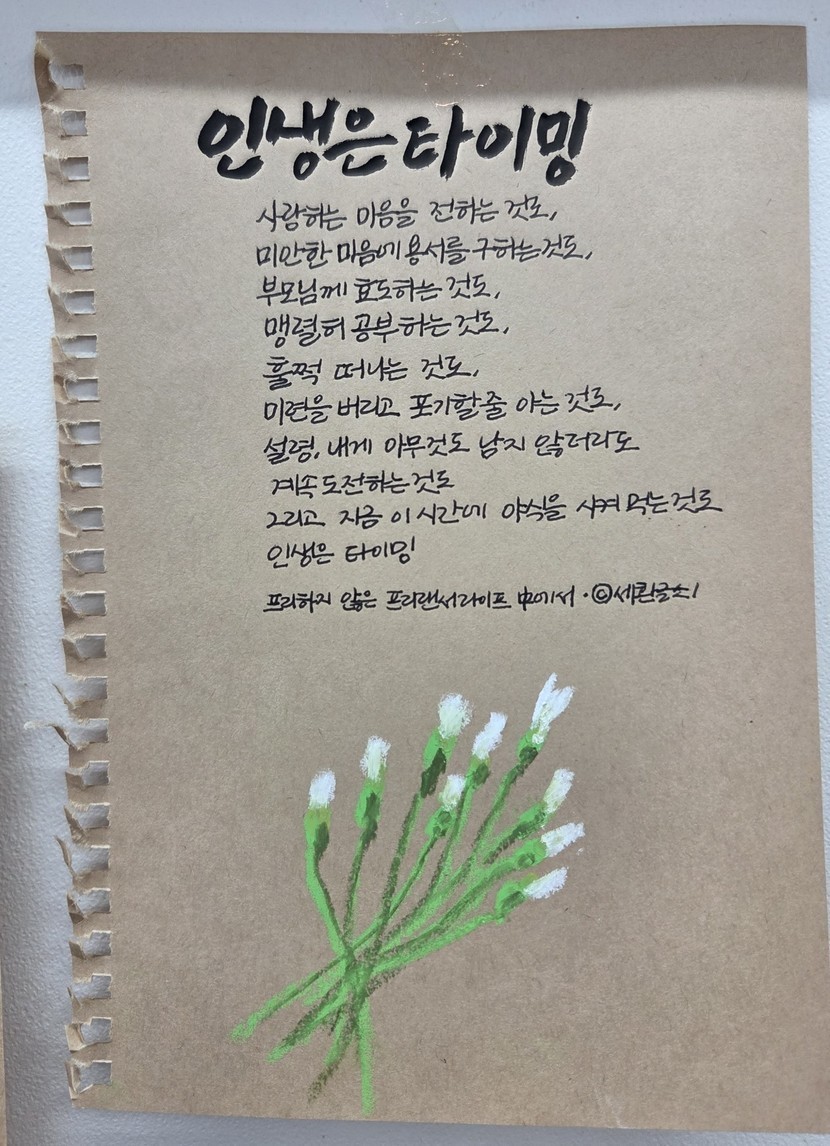 인생은 타이밍
사랑하는 마음을 전하는 것도,
미안한 마음에 용서를 구하는 것도,
부모님께 효도하는 것도,
맹렬히 공부하는 것도,
훌쩍 떠나는 것도,
미련을 버리고 포기할 줄 아는 것도,
설령, 내게 아무것도 남지 않더라도
계속 도전하는 것도
그리고 지금 이 시간에 야식을 시켜 먹는 것도
인생은 타이밍
프리하지 않은 프리랜서라이프 中에서 · ©